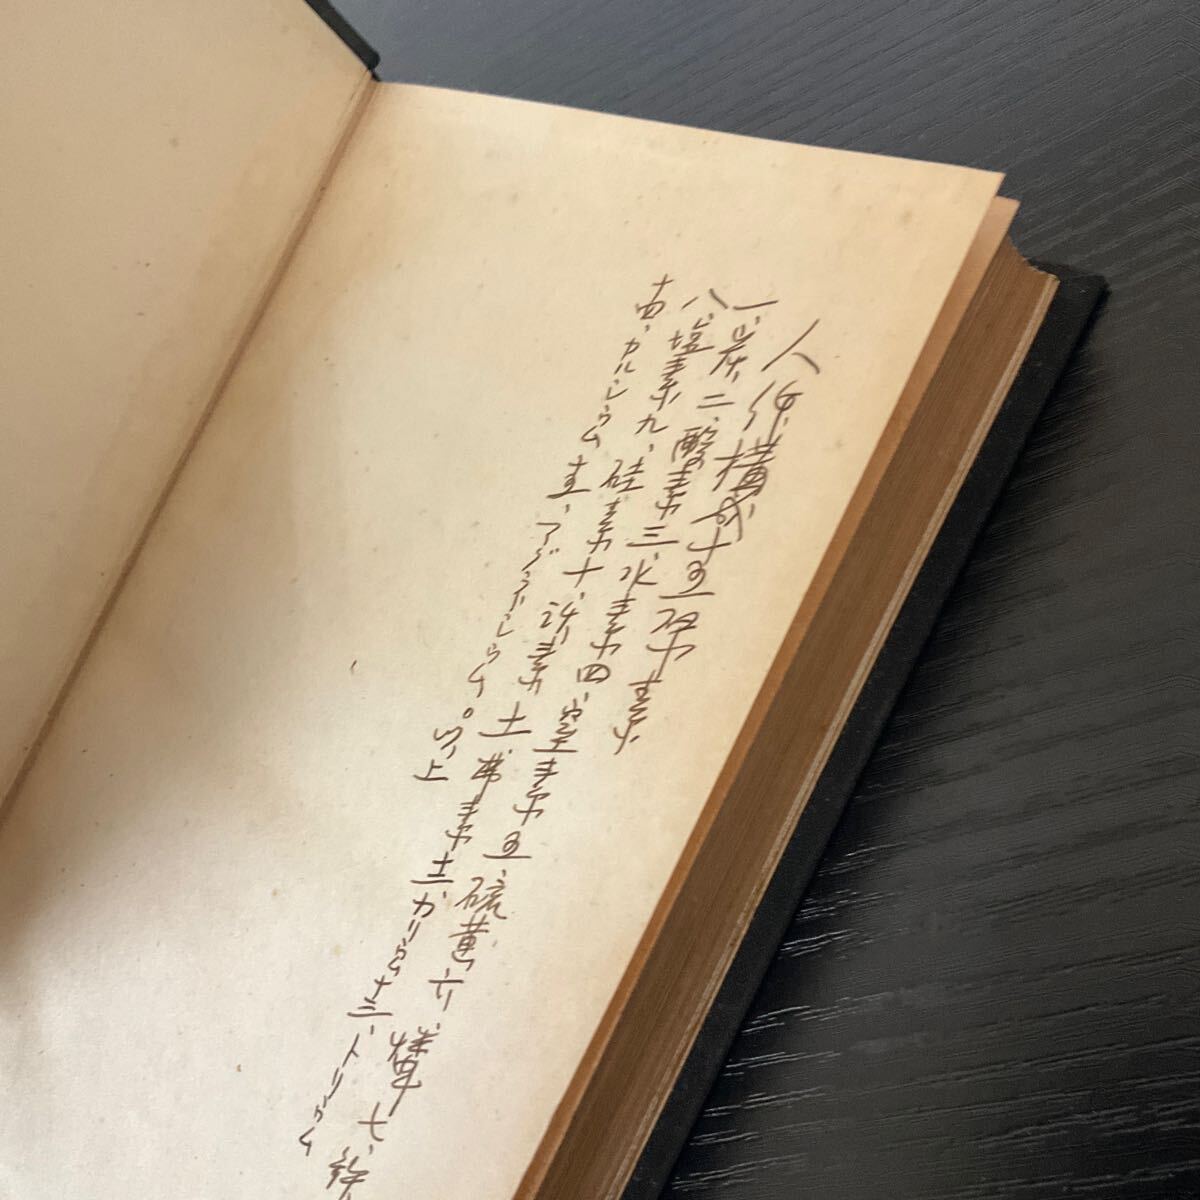 人体構成十五原素
一、炭、二、酸素三、水素四、窒素五、硫黄六、燐七、鉄
八、塩素九、硅素十、沃素十一、弗素十二、カリウム十三、トリウム
十四、カルシウム 十五、マグネシウム。以上